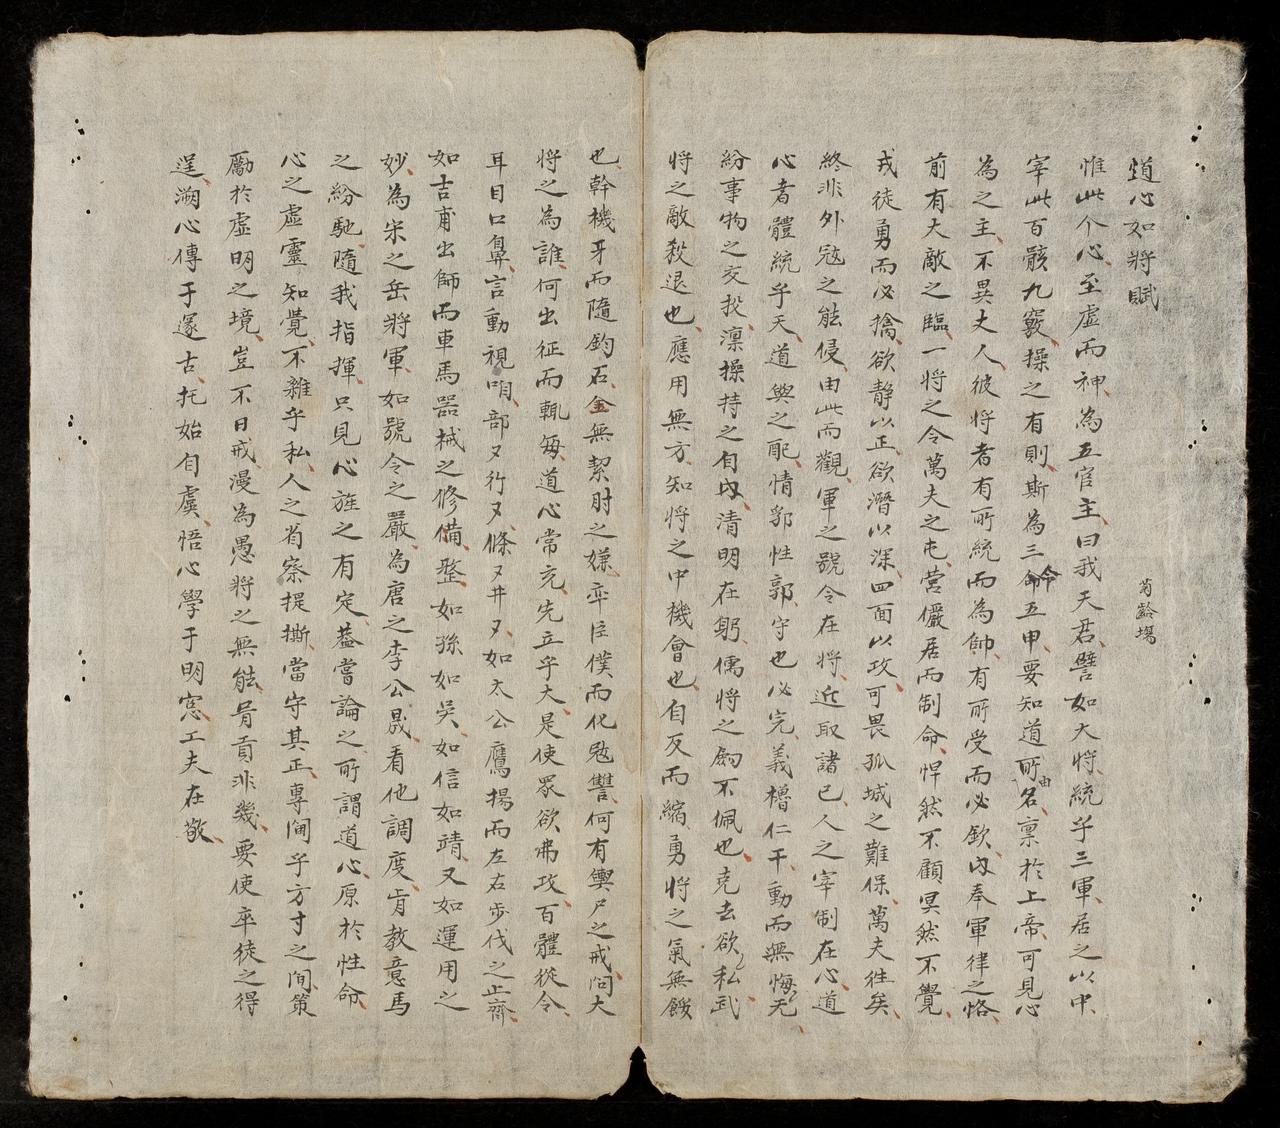 道心如將賦
菊齡場
惟此个心至虛而神為五官主曰我天君譬如大將統乎三軍居之以中
宰此百骸九竅操之有則斯為三令五申要知道所由名稟於上帝可見心
為之主不異丈人彼將者有所統而為帥有所受而必欽內奉軍律之恪
前有大敵之臨一將之令萬夫之屯營儼居而制命悍然不顧冥然不覺
戎徒勇而必擒欲静以正欲潛以深四面以攻可畏孤城之難保萬夫徃矣
終非外冦之能侵由此而觀軍之號令在將近取諸已人之宰制在心道
心者體統乎天道與之配情郛性郭守也必完義櫓仁干動而無悔无
紛事物之交投凛操持之自內清明在躬儒將之劔不佩也克去欲私武
將之敵敎退也應用無方知將之中機會也自反而縮勇將之氣無餒
也幹機牙而隨鈞石金無絜肘之嫌牽臣僕而化冦讐何有輿尸之戒问大
將之為誰何出征而輒每道心常充先立乎大是使衆欲弗攻百體從令
耳目口鼻言動視咱部又行又條又井又如太公鷹揚而左右步伐之止齊
如吉甫出師而車馬器械之修備整如孫如吳如信如靖又如運用之
妙為宋之岳將軍如號令之嚴為唐之李公晟看他調度肯教意馬
之紛馳隨我指揮只見心旌之有定蓋嘗論之所謂道心原於性命
心之虛靈知覺不雜乎私人之省察提撕當守其正專閫乎方寸之间策
勵於虛明之境豈不日戒漫為愚將之無能骨貢非幾要使卒徒之得
逞溯心傳于邃古托始自虞悟心學于明窓工夫在敬